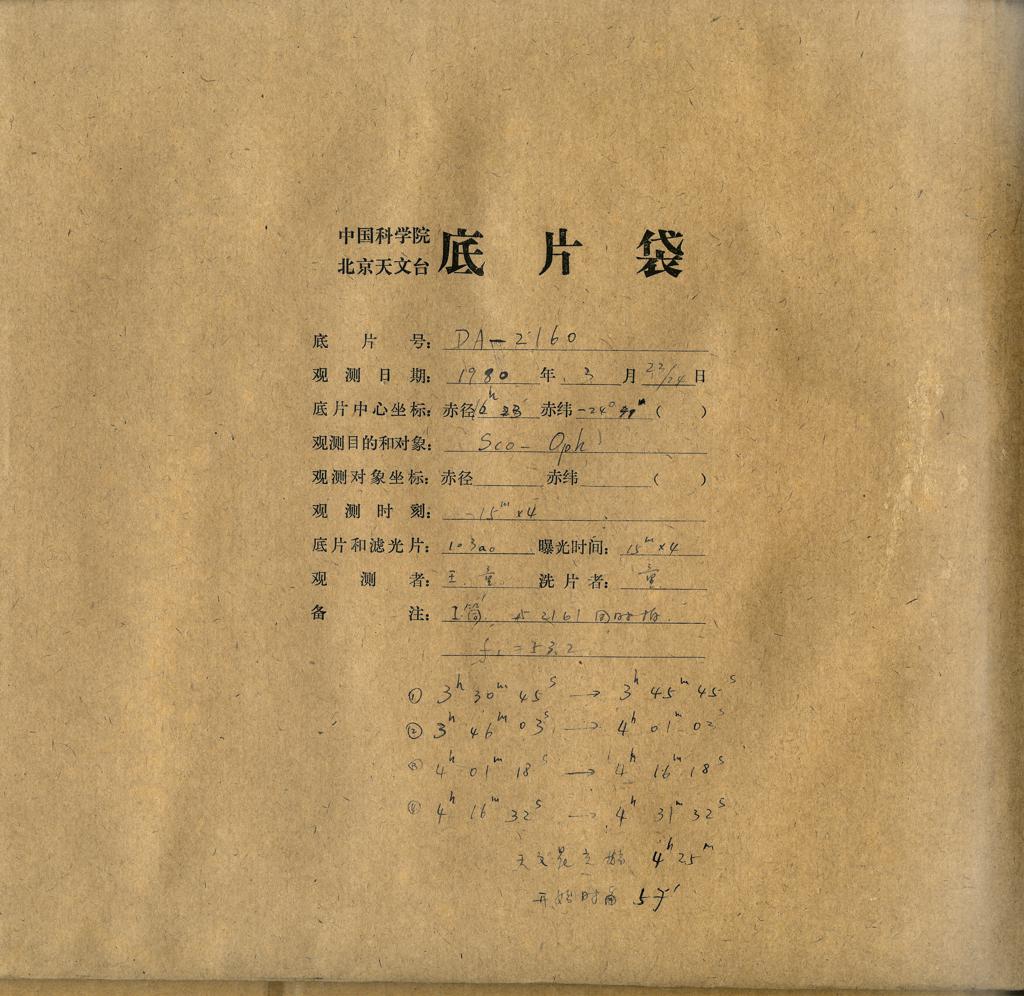 中国科学院
北京天文台
底片袋
底片号: DA-2160
观测日期: 1980年 3月23/24日
底片中心坐标: 赤径16h 赤纬-24° ( )
观测目的和对象: Sco-Oph
观测对象坐标: 赤径 赤纬 ( )
观测时刻: -15m×4
底片和滤光片: 103aO 曝光时间: 15m×4
观测者: 王、童 洗片者: 童
备注: I筒, 与2161同时拍.
=53.2
① 3h 30m 45s → 3h 45m 45s
② 3h 46m 03s → 4h 01m 03s
③ 4h 01m 18s → 4h 16m 18s
④ 4h 16m 32s → 4h 31m 32s
天文晨 4h25m
开始时角